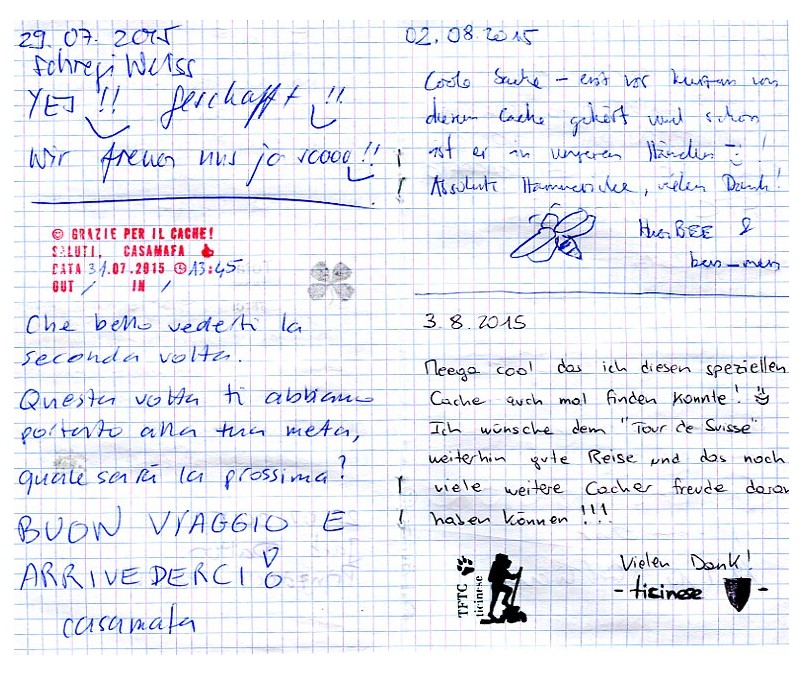 29.07.2015
Schregi Weiss
YES !! geschafft !!
Wir freuen uns jo soooo !!
© GRAZIE PER IL CACHE!
SALUTI, CASAMAFA
DATA 31.07.2015 13:45
OUT / IN /
Che bello vederti la
seconda volta.
Questa volta ti abbiamo
portato alla tua meta,
quale sarà la prossima?
BUON VIAGGIO E
ARRIVEDERCI
casamafa
02.08.2015
Coole Sache – erst vor kurzem von
diesem Cache gehört und schon
ist er in unseren Händen !
Absolute , vielen Dank!
BEE &
3.8.2015
Meega cool das ich diesen speziellen
Cache auch mol finden konnte!
Ich wünsche dem "Tour de Suisse"
weiterhin gute Reise und das noch
viele weitere Cacher freude daran
haben können !!!
Vielen Dank!
TFTC
ticinese
- ticinese -